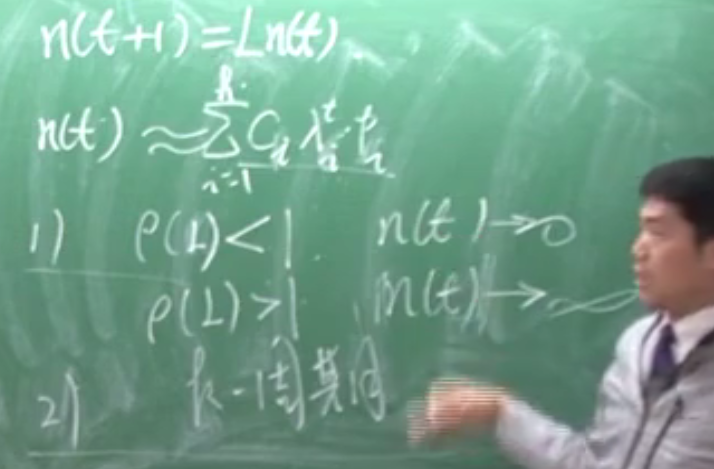 n(t+1)=Ln(t).
n(t)≈∑_{i=1}^{k} C_i λ_i^t t_i
1) ρ(L)<1. n(t)→0
ρ(L)>1, ‖n(t)‖→∞
2) k-周期